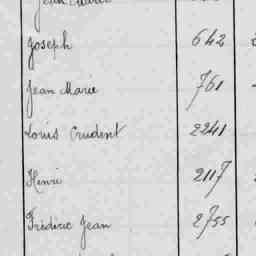 Joseph 642
Jean Marie 761
Louis Prudent 2241
Henri 2117
Frédéric Jean 2755